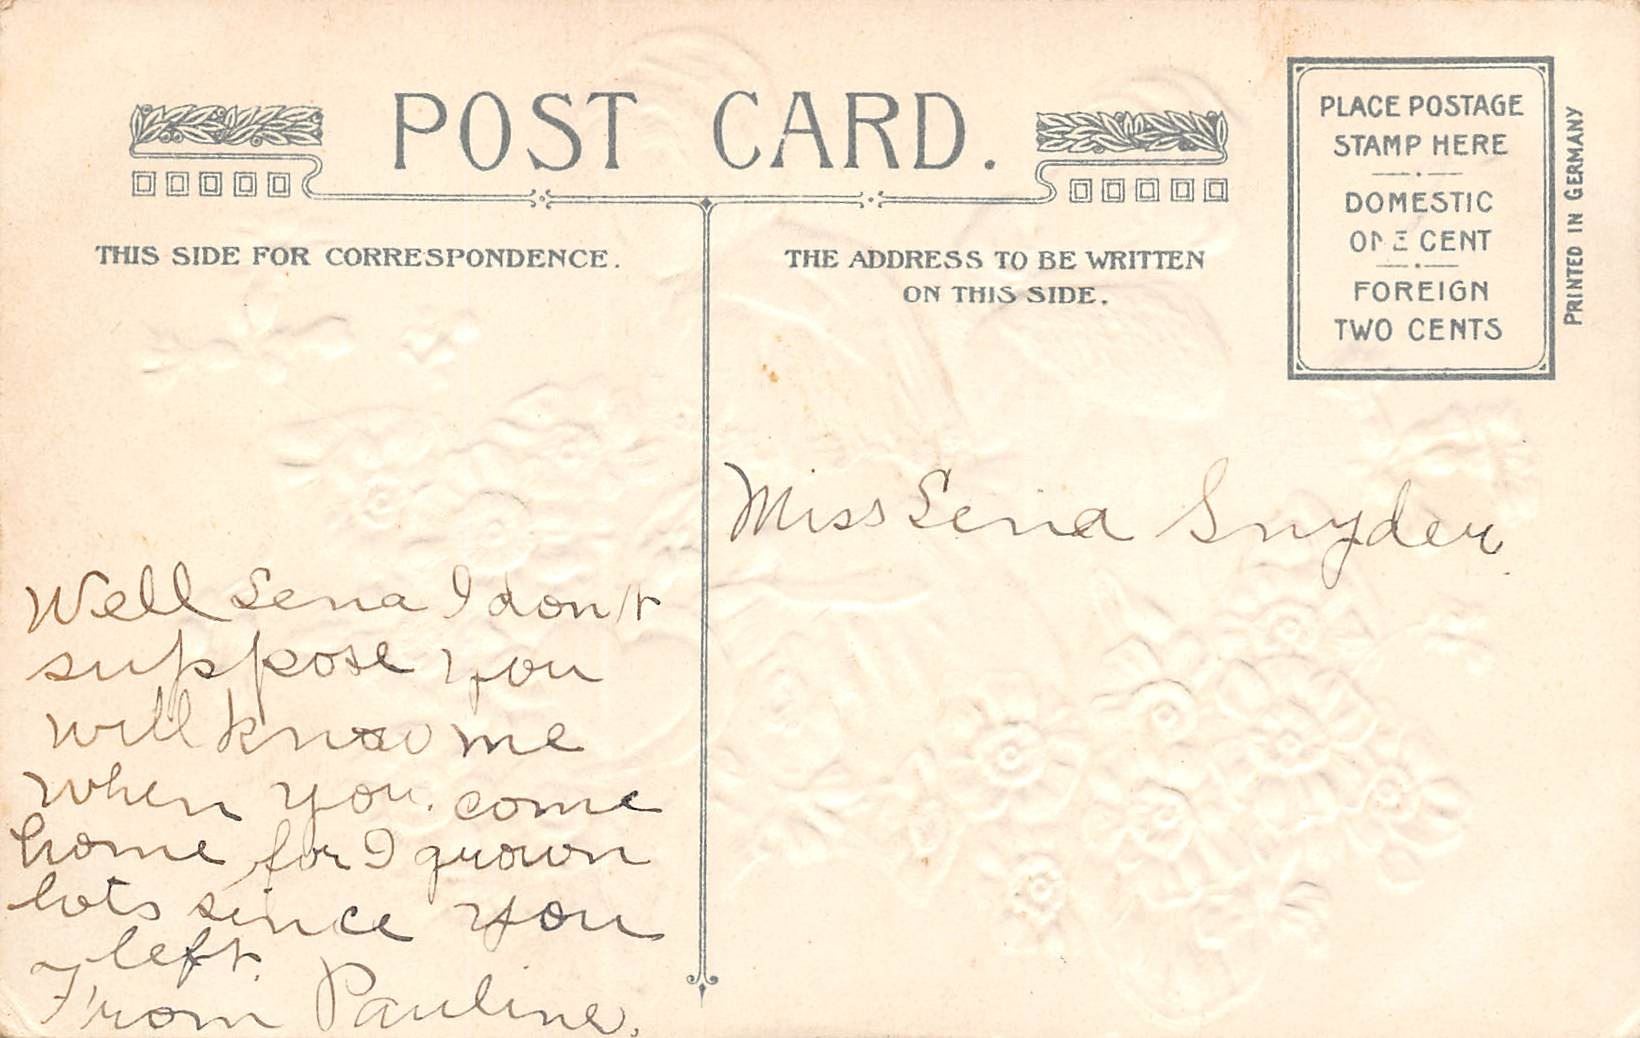 POST CARD.
THIS SIDE FOR CORRESPONDENCE.
THE ADDRESS TO BE WRITTEN
ON THIS SIDE.
PLACE POSTAGE
STAMP HERE
DOMESTIC
ONE CENT
FOREIGN
TWO CENTS
PRINTED IN GERMANY
Well Lena I don't
suppose you
will know me
when you come
home for I grown
lots since you
left.
From Pauline.
Miss Lena Snyder